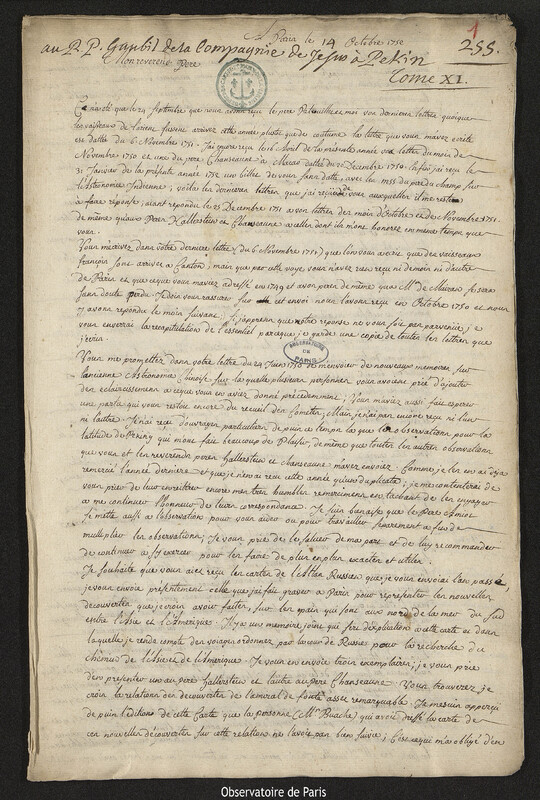 A Paris le 14 Octobre 1752
1
au R. P. Gaubil de la Compagnie de Jesus à Pekin
255.
Mon reverend Pere
Tome XI.
Ce n'a eté que le 29 Septembre que nous avons reçu le pere Patouillet et moi vos dernieres lettres quoique
les vaisseaux de Lorient fussent arrivez cette année plutot que de coutume la lettre que vous m'avez ecrite
est dattée du 6 Novembre 1751. J'ai encore reçu le 16 Avril de la presente année vos lettres du mois de
Novembre 1750 et une du pere Chanseaume à Macao dattée du 20 Decembre 1750. Enfin j'ai reçu le
31 Janvier de la presente année 1752 un billet de vous sans datte, avec les mss du pere du champ sur
l'Astronomie Indienne; voila les dernieres lettres que j'ai reçues de vous auxquelles il me reste
à faire reponse; aiant repondu le 23 Decembre 1751 a vos lettres des mois d'Octobre et de Novembre 1751.
de même qu'aux Peres Hallerstein et Chanseaume a celles dont ils m'ont honorez en même temps que
vous.
Vous m'ecrivez dans votre derniere lettre (du 6 Novembre 1751) que l'on vous a ecrit que des vaisseaux
françois sont arrivez a Canton; mais que par cette voye vous n'avez rien reçu ni de moi ni d'autre
de Paris et que ce que vous m'avez adressé en 1749 et avos peres de même que Mr. de Mairan sera
sans doute perdu. Je dois vous rassurer sur cet envoi; nous l'avons reçu en Octobre 1750 et nous
y avons repondu le mois suivant. Si j'apprens que notre reponse ne vous soit pas parvenue, je
vous enverrai la recapitulation de l'essentiel parce que je garde une copie de toutes les lettres que
j'ecris.
OBSERVATOIRE DE PARIS
Vous me promettez dans votre lettre du 24 Juin 1750 de m'envoier de nouveaux memoires sur
l'ancienne Astronomie Chinoise sur laquelle plusieurs personnes vous avoient prié d'ajouter
des eclaircissemens a ce que vous en aviez donné precedemment; Vous m'aviez aussi fait esperer
une partie qui vous restoit encore du recueil des Cometes; Mais je n'ai pas encore reçu ni l'un
ni l'autre. Je n'ai reçu d'ouvrages particuliers depuis ce temps la que les observations pour la
latitude de Peking qui m'ont fait beaucoup de plaisir, de même que toutes les autres observations
que vous et les reverends peres Hallerstein et Chanseaume m'avez envoiez. Comme je les en ai deja
remercié l'année derniere et que je n'en ai reçu cette année qu'un duplicata; je me contenterai de
vous prier de leur en reitérer encore mes tres humbles remercimens, en tachant de les engager
a me continuer l'honneur de leurs correspondances. Je suis bien aise que le Pere Amiot
se mette aussi a l'observation pour vous aider ou pour travailler separement afin de
multiplier les observations; Je vous prie de le saluer de ma part et de luy recommander
de continuer a s'y exercer pour les faire de plus en plus exactes et utiles.
Je souhaite que vous aiez reçu les cartes de l'Atlas Russien que je vous envoiai l'an passé,
je vous envoie presentement celle que j'ai fait graver a Paris pour representer les nouvelles
decouvertes que je crois avoir faites, sur les pais qui sont aux nord de la mer du Sud
entre l'Asie et l'Amerique. Il y a un memoire joint qui sert d'explication a cette carte et dans
laquelle je rends compte des voyages ordonnez par la cour de Russie pour la recherche du
chemin de l'Asie et de l'Amerique. Je vous en envoie trois exemplaires; je vous prie
d'en presenter un au pere Hallerstein et l'autre au pere Chanseaume. Vous trouverez je
crois la relation des decouvertes de l'amiral de Fonte assez remarquable. Je me suis apperçu
depuis l'edition de cette Carte que la personne (Mr. Buache) qui avoit dressé la carte de
ces nouvelles decouvertes sur cette relation ne l'avoit pas bien suivie; C'est ce qui m'a obligé d'en
Observatoire de Paris